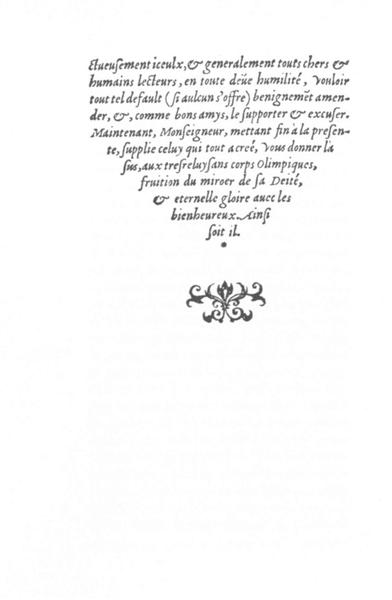 ctueusement iceulx, & generalement touts chers &
humains lecteurs, en toute deüe humilité, vouloir
tout tel default (si aulcun s'offre) benignemẽt amen-
der, &, comme bons amys, le supporter & excuser.
Maintenant, Monseigneur, mettant fin à la presen-
te, supplie celuy qui tout acreé, vous donner là
sus, aux tresreluysans corps Olimpiques,
fruition du miroer de sa Deité,
& eternelle gloire auec les
bienheureux. Ainsi
soit il.